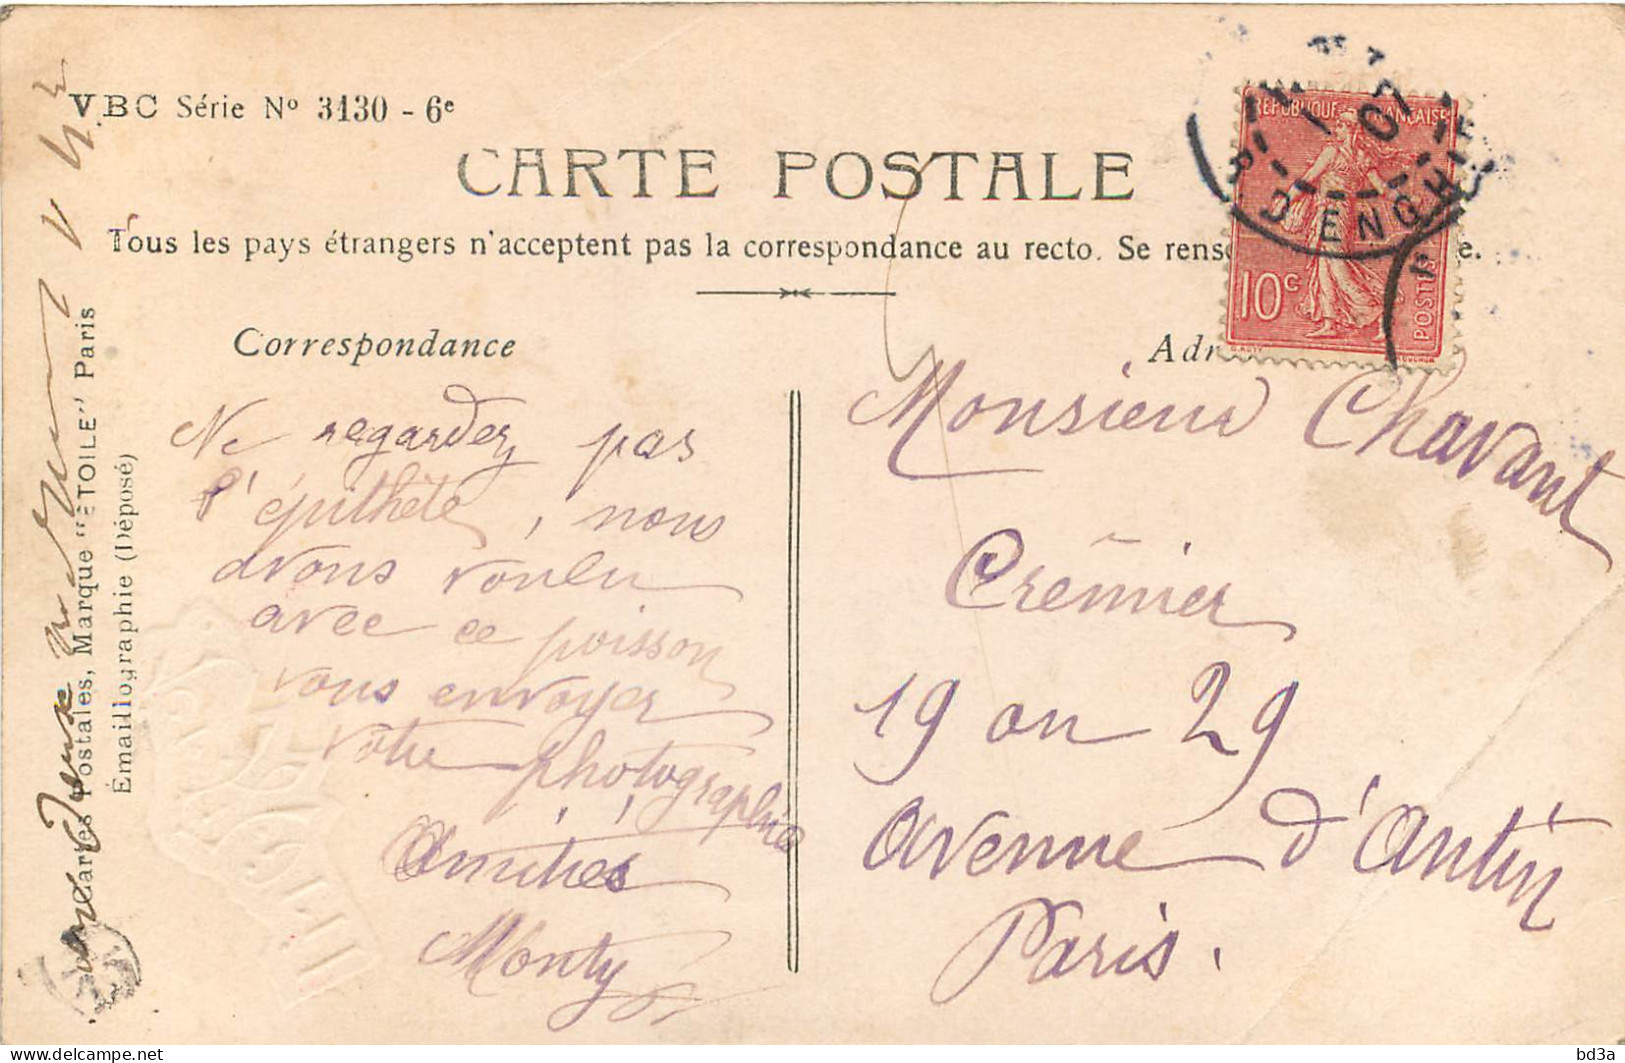 VBC Série Nº 3130 - 6e
CARTE POSTALE
Tous les pays étrangers n'acceptent pas la correspondance au recto. Se rens
e.
Correspondance
Ne regardez pas
l'épithète, nous
avons voulu
avec ce poisson
vous envoyer
votre photographie
Amitiés
Monty
Adr
Monsieur Chavant
Crémier
19 ou 29
avenue d'Antin
Paris.
REPUBLIQUE FRANÇAISE
10 c
POSTES
07
D'ENGH
Cartes Postales, Marque "ÉTOILE" Paris
Émaillographie (Déposé)
delcampe.net
bd3a